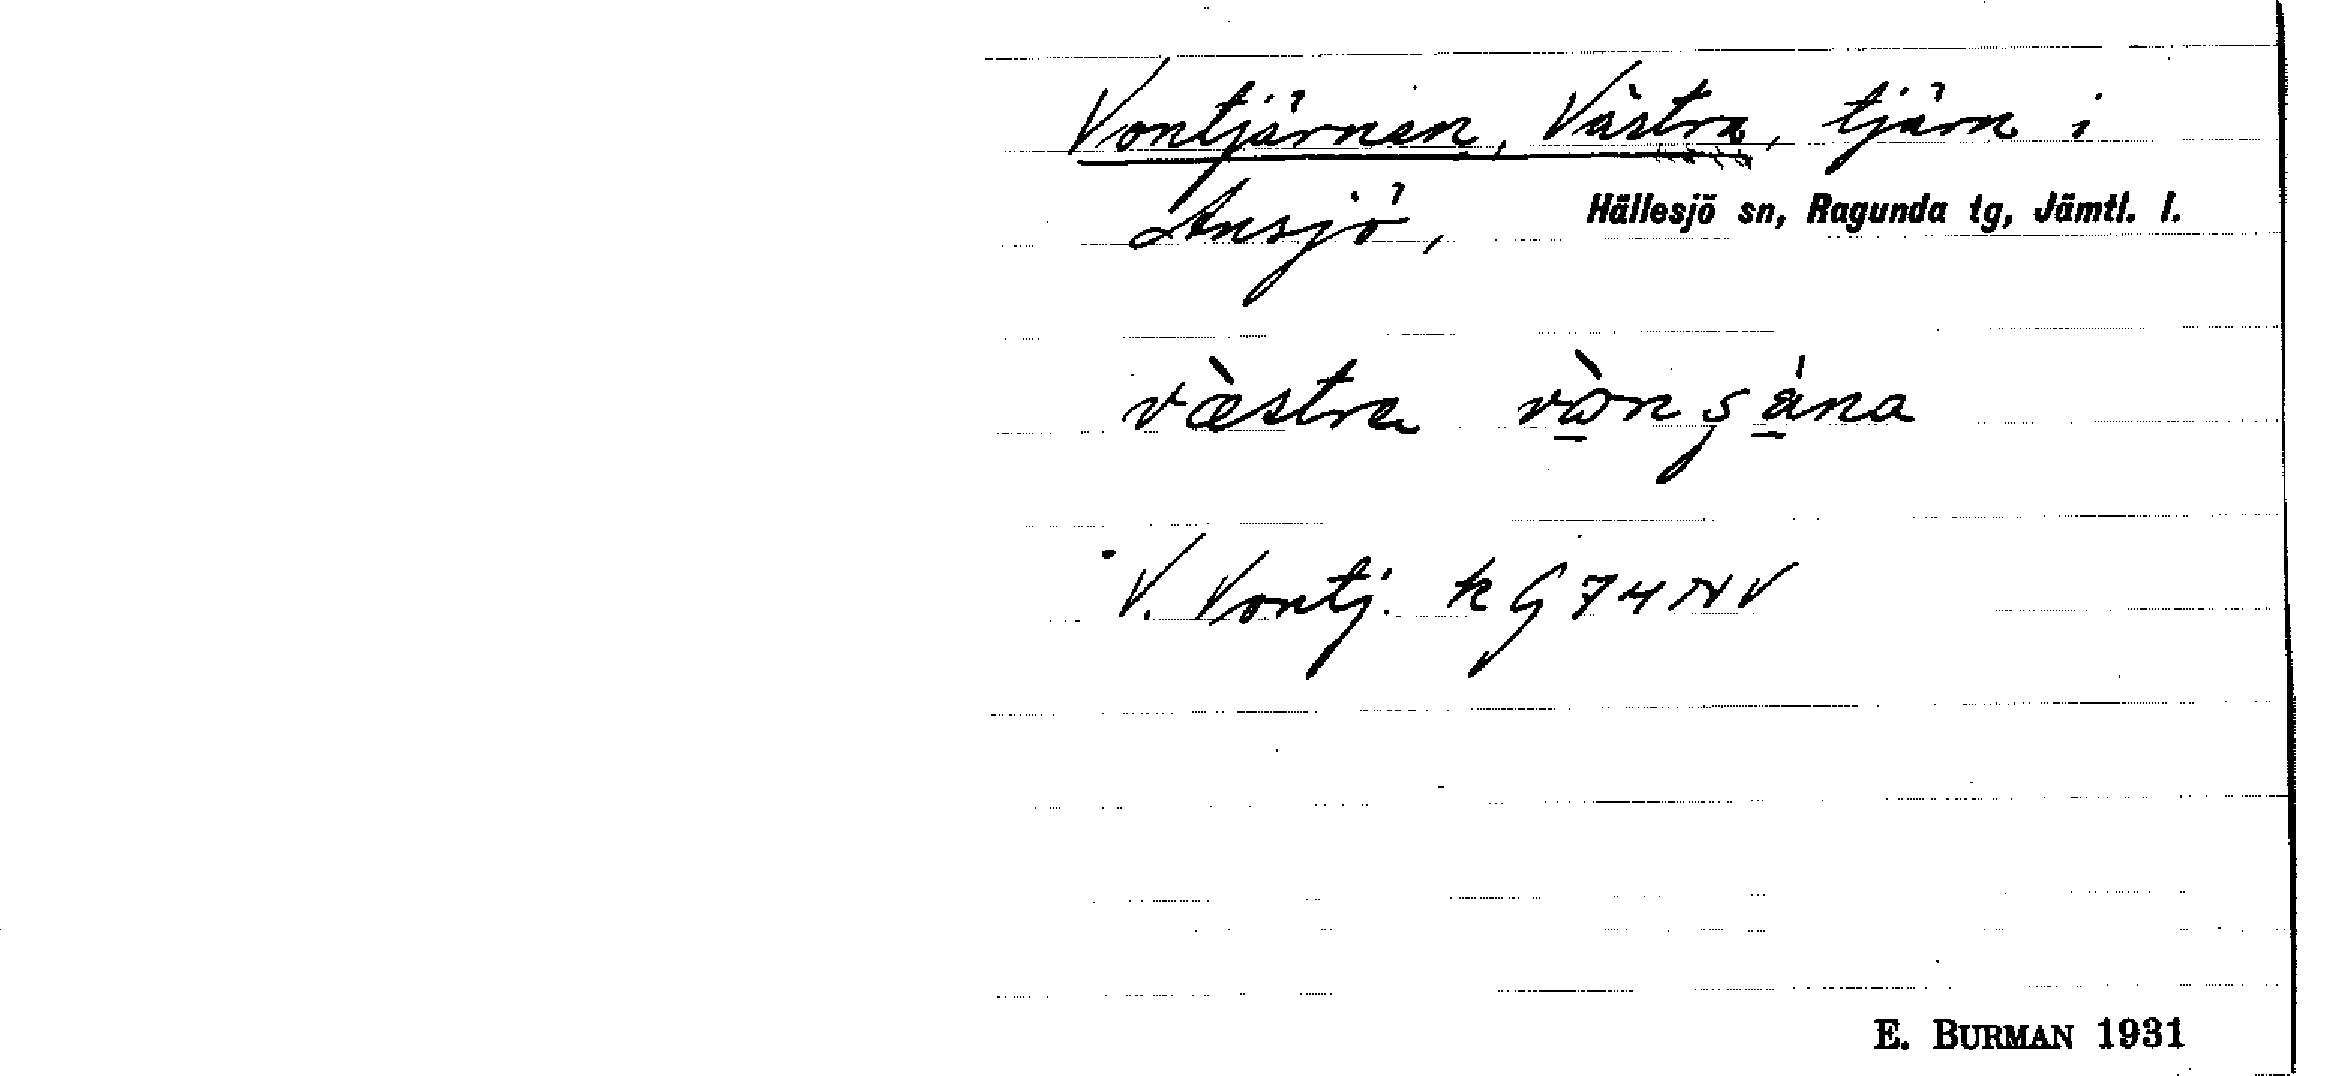 Vontjärnen, Västra, tjärn i
Ansjö, Hällesjö sn, Ragunda tg, Jämtl. l.
væ̀stra
V. Vontj. k G 74 NV
E. BURMAN 1931